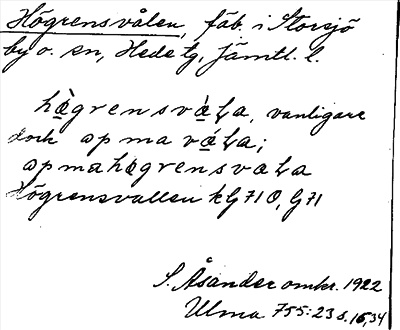 Högrensvålen, fäb. i Storsjö
by o. sn, Hede tg, Jämtl. l.
högrensvàla, vanligare
dock opma vála;
opmahögrensvala
Högrensvallen kG 71 O, G 71
S. Åsander omkr. 1922
Ulma 755:23 s. 16, 34